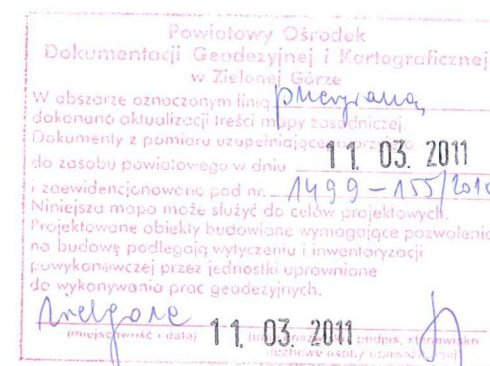 Powiatowy Ośrodek
Dokumentacji Geodezyjnej i Kartograficznej
w Zielonej Górze
W obszarze oznaczonym linią przerywaną
dokonano aktualizacji treści mapy zasadniczej.
Dokumenty z pomiaru uzupełniającego przyjęto
do zasobu powiatowego w dniu 11. 03. 2011
i zaewidencjonowano pod nr. 1499-155/2010
Niniejsza mapa może służyć do celów projektowych.
Projektowane obiekty budowlane wymagające pozwolenia
na budowę podlegają wytyczeniu i inwentaryzacji
powykonawczej przez jednostki uprawnione
do wykonywania prac geodezyjnych.
11. 03. 2011
(miejscowość i data) podpis, stanowisko
osoby